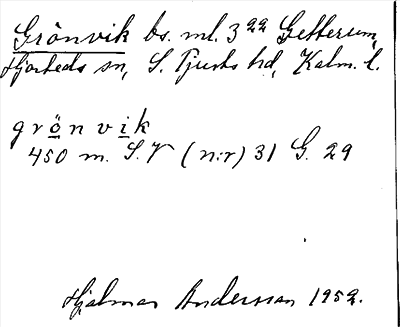 Grönvik bs. ml. 3²² Gettersum,
Hjorteds sn, S. Tjusts hd, Kalm. l.
grönvik
450 m. S.V (n:r) 31 G. 29
Hjalmar Andersson 1952.